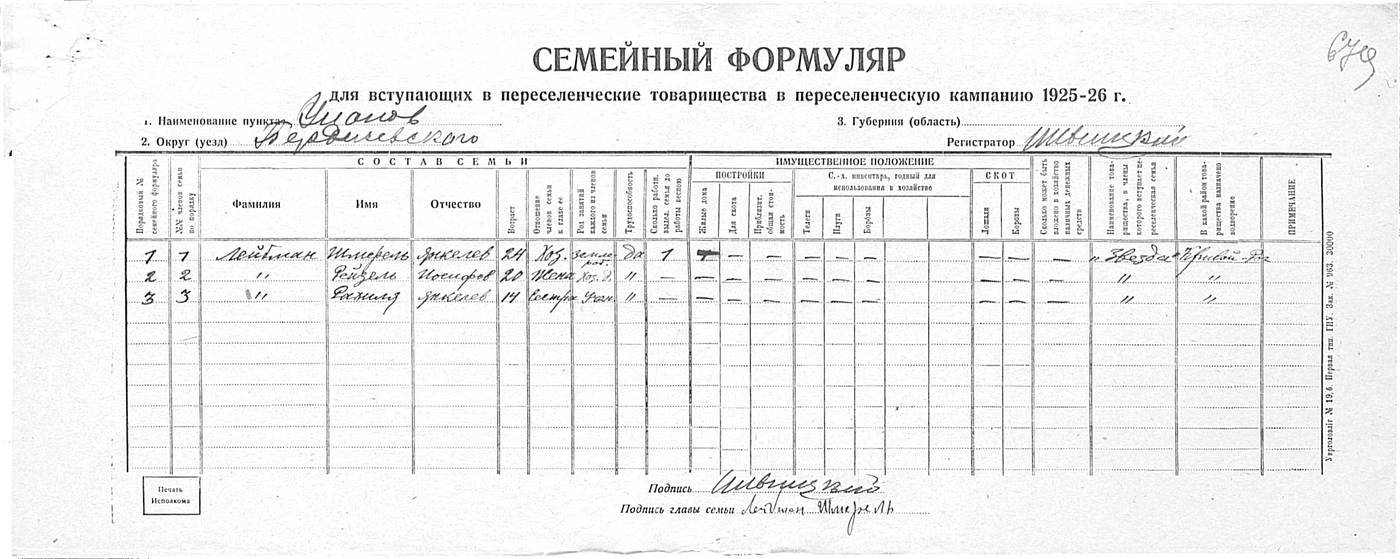 679
СЕМЕЙНЫЙ ФОРМУЛЯР
для вступающих в переселенческие товарищества в переселенческую кампанию 1925-26 г.
1. Наименование пункта Уланов
3. Губерния (область)
2. Округ (уезд) Бердичевского
Регистратор
СОСТАВ СЕМЬИ
ИМУЩЕСТВЕННОЕ ПОЛОЖЕНИЕ
Порядковый № семейного формуляра
№№ членов семьи по порядку
Фамилия
Имя
Отчество
Возраст
Отношение членов семьи к главе ее
Род занятий каждого из членов семьи
Трудоспособность
Сколько работн. выдел. семья до работы весною
ПОСТРОЙКИ
Жилые дома
Для скота
Приблизит. общая стоимость
С.-х. инвентарь, годный для использования в хозяйстве
Телеги
Плуги
Бороны
СКОТ
Лошади
Коровы
Сколько может быть вложено в хозяйство наличных денежных средств
Наименование товарищества, в члены которого вступает переселенческая семья
В какой район товарищества назначено водворение
ПРИМЕЧАНИЕ
1 1 Лейбман Шмерель Янкелев 24 Хоз. Да 1 — — — — — — — — „Звезда“ Кривой-Рог
2 2 " Рейзель Иосифов 20 Жена Хоз. Д. " — — — — — — — — — — " "
3 3 " Рахиля Янкелев 14 Сестра " — — — — — — — — — — " "
Укрголовліт № 19,6. Первая тип. ГПУ. Зак. № 963. 30000
Печать Исполкома
Подпись
Подпись главы семьи Лейбман Шмерель